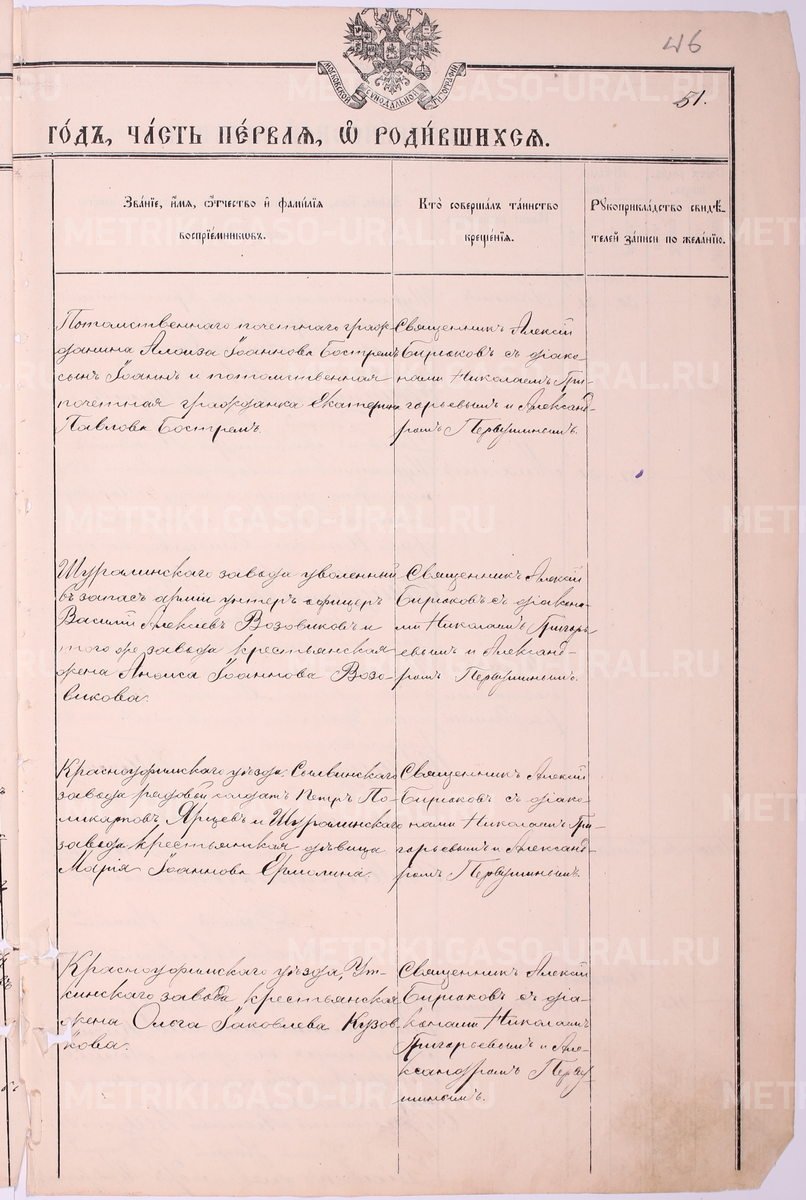 46
51.
МОСКОВСКОЙ СѴНОДАЛЬНОЙ ТИПОГРАФІИ
ГО́ДЪ, ЧА́СТЬ ПЕ́РВАѦ, Ѽ РОДИ́ВШИХСѦ.
Зва́нїе, и́мѧ, ѻ҆́тчество и҆ фами́лїѧ
воспрїе́мникѡвъ.
Кто̀ соверша́лъ та́инство
креще́нїѧ.
Рꙋкоприкла́дство свидѣ́-
телей за́писи по жела́нїю.
Потомственнаго почетнаго граж-
данина Алоиза Іоаннова Бострем
сынъ Іоаннъ и потомственная
почетная гражданка Екатерина
Павлова Бостремъ.
Священникъ Алексій
Бирюковъ съ діако-
нами Николаемъ Гри-
горьевымъ и Александ-
ромъ Первушинымъ.
Шуралинскаго завода уволенный
въ запасъ арміи унтеръ офицеръ
Василій Алексѣевъ Возовиковъ и
того же завода крестьянская
жена Анѳиса Іоаннова Возо-
викова.
Священникъ Алексій
Бирюковъ съ діакона-
ми Николаемъ Григорь-
евымъ и Александ-
ромъ Первушинымъ.
Красноуфимскаго уѣзда, Сылвинскаго
завода рядовой солдатъ Петръ По-
ликарповъ Ярцевъ и Шуралинскаго
завода крестьянская дѣвица
Марія Іоаннова Ермолина.
Священникъ Алексій
Бирюковъ съ діако-
нами Николаемъ Гри-
горьевымъ и Александ-
ромъ Первушинымъ.
Красноуфимскаго уѣзда, Ут-
кинскаго завода крестьянская
жена Ольга Іаковлева Кузов-
кова.
Священникъ Алексій
Бирюковъ съ діа-
конами Николаемъ
Григорьевымъ и Але-
ксандромъ Перву-
шинымъ.
METRIKI.GASO-URAL.RU